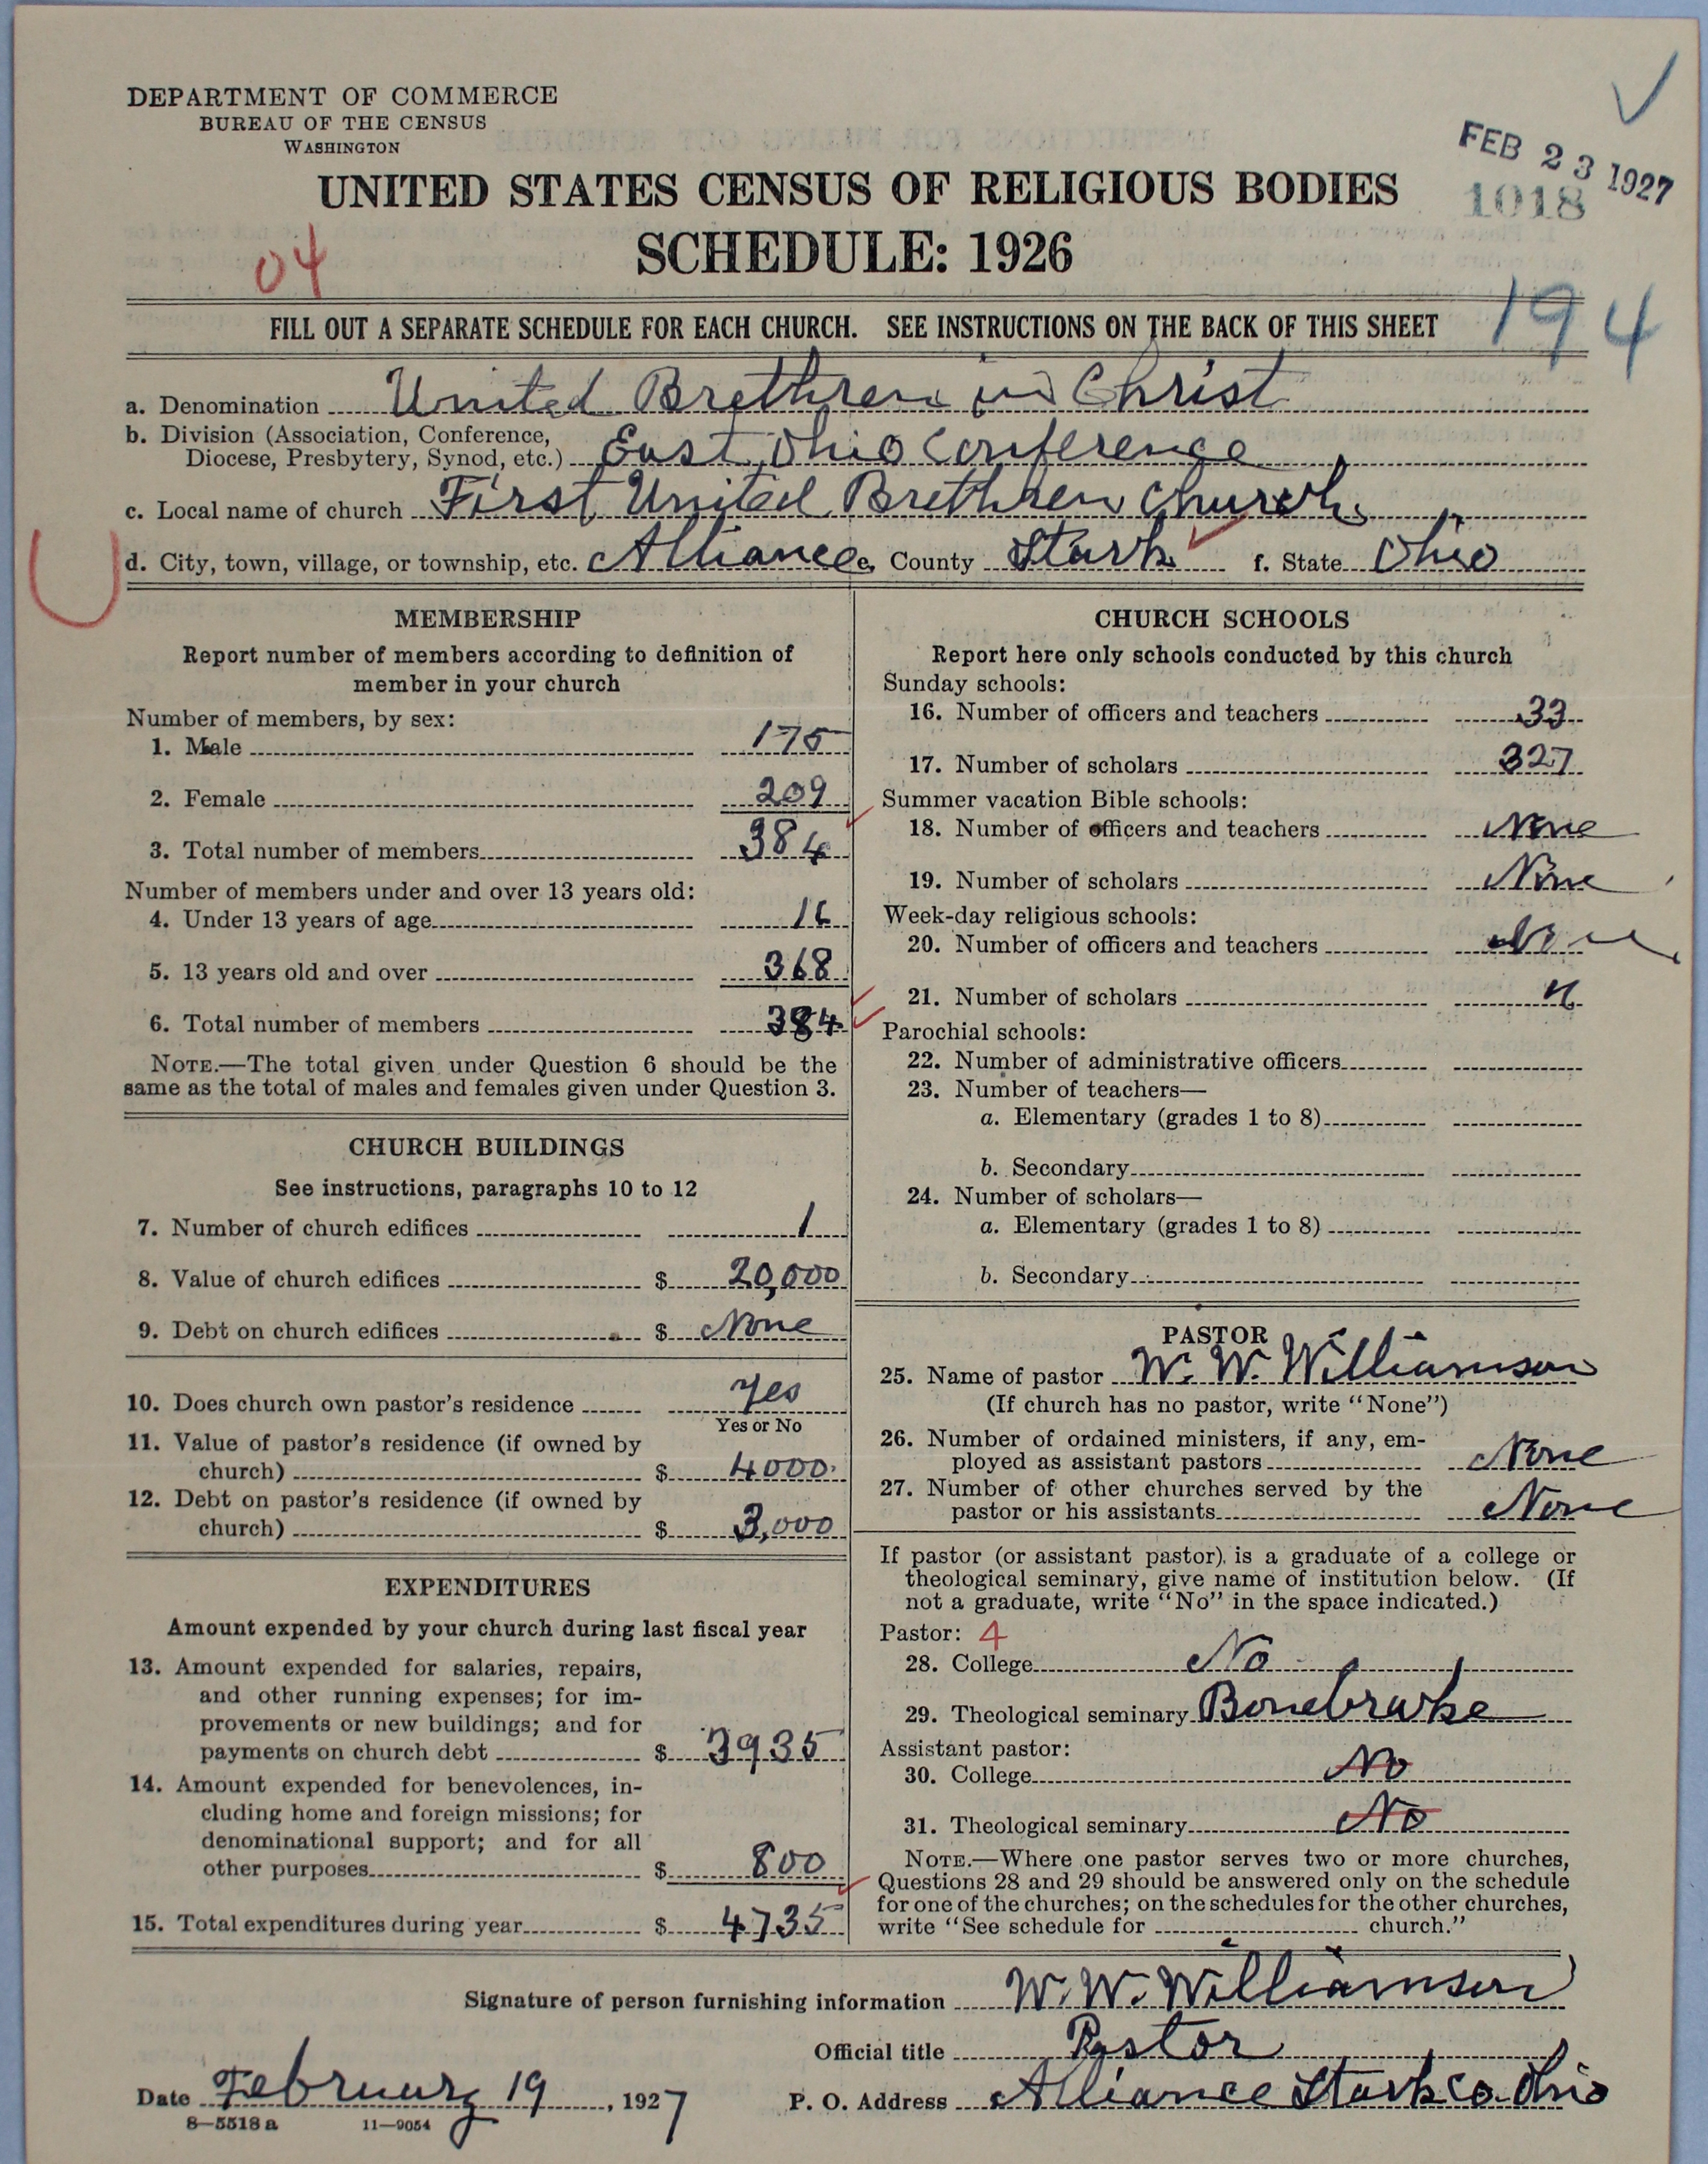 DEPARTMENT OF COMMERCE
BUREAU OF THE CENSUS
WASHINGTON
FEB 23 1927
1018
UNITED STATES CENSUS OF RELIGIOUS BODIES
SCHEDULE: 1926
04
194
FILL OUT A SEPARATE SCHEDULE FOR EACH CHURCH. SEE INSTRUCTIONS ON THE BACK OF THIS SHEET
a. Denomination United Brethren in Christ
b. Division (Association, Conference,
Diocese, Presbytery, Synod, etc.) East Ohio Conference
c. Local name of church First United Brethren Church
d. City, town, village, or township, etc. Alliance e. County Stark f. State Ohio
MEMBERSHIP
Report number of members according to definition of
member in your church
Number of members, by sex:
1. Male 175
2. Female 209
3. Total number of members 384
Number of members under and over 13 years old:
4. Under 13 years of age 16
5. 13 years old and over 368
6. Total number of members 384
NOTE.—The total given under Question 6 should be the
same as the total of males and females given under Question 3.
CHURCH BUILDINGS
See instructions, paragraphs 10 to 12
7. Number of church edifices 1
8. Value of church edifices $ 20,000
9. Debt on church edifices $ None
10. Does church own pastor's residence yes
Yes or No
11. Value of pastor's residence (if owned by
church) $ 4000.
12. Debt on pastor's residence (if owned by
church) $ 3,000
EXPENDITURES
Amount expended by your church during last fiscal year
13. Amount expended for salaries, repairs,
and other running expenses; for im-
provements or new buildings; and for
payments on church debt $ 3935
14. Amount expended for benevolences, in-
cluding home and foreign missions; for
denominational support; and for all
other purposes $ 800
15. Total expenditures during year $ 4735
CHURCH SCHOOLS
Report here only schools conducted by this church
Sunday schools:
16. Number of officers and teachers 33
17. Number of scholars 327
Summer vacation Bible schools:
18. Number of officers and teachers None
19. Number of scholars None
Week-day religious schools:
20. Number of officers and teachers None
21. Number of scholars "
Parochial schools:
22. Number of administrative officers
23. Number of teachers—
a. Elementary (grades 1 to 8)
b. Secondary
24. Number of scholars—
a. Elementary (grades 1 to 8)
b. Secondary
PASTOR
25. Name of pastor W. W. Williamson
(If church has no pastor, write "None")
26. Number of ordained ministers, if any, em-
ployed as assistant pastors None
27. Number of other churches served by the
pastor or his assistants None
If pastor (or assistant pastor) is a graduate of a college or
theological seminary, give name of institution below. (If
not a graduate, write "No" in the space indicated.)
Pastor: 4
28. College No
29. Theological seminary Bonebrake
Assistant pastor:
30. College No
31. Theological seminary No
NOTE.—Where one pastor serves two or more churches,
Questions 28 and 29 should be answered only on the schedule
for one of the churches; on the schedules for the other churches,
write "See schedule for church."
Signature of person furnishing information W. W. Williamson
Official title Pastor
Date February 19, 1927 P. O. Address Alliance Stark Co. Ohio
8—5518 a 11—9054